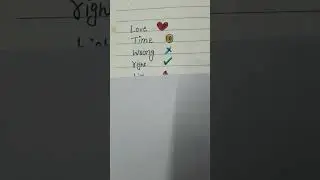 right
Love ❤
Time
Wrong ✗
right ✓